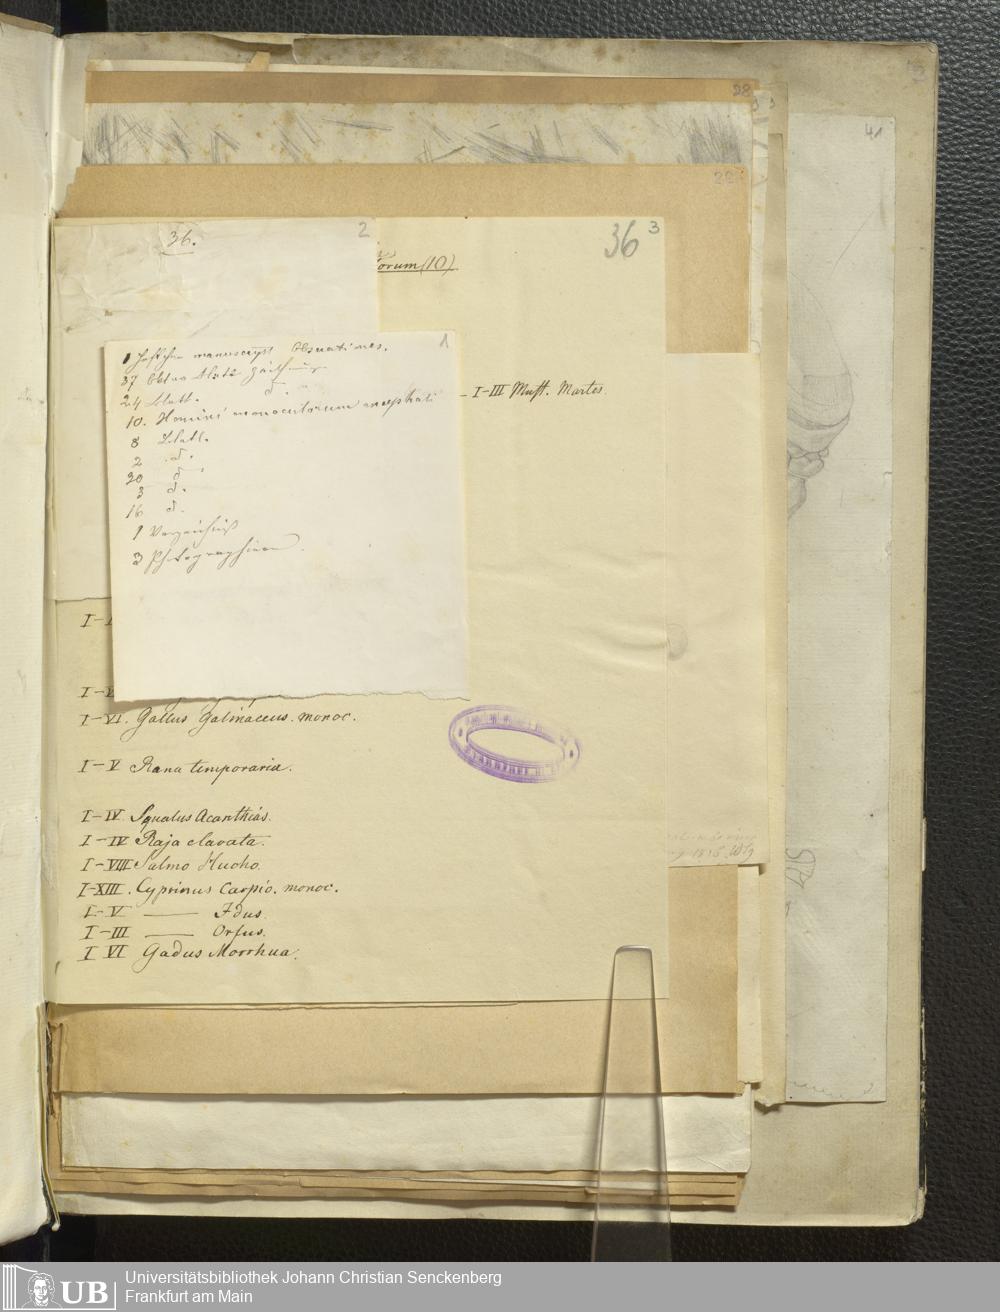 28
22
41
36.
2
36
3
orum (10)
1
1 manuscript Obseruationes.
37 Blatt
24 Blatt. d.
10. Homini monoculorum encephali
8 Blatt.
2 d.
20 d.
3 d.
16 d.
1 Verzeichniß
3 Photographien.
I-III Must. Martes.
I-VI. Gallus Galinaceus. monoc.
I-V Rana temporaria.
I-IV Squalus Acanthias.
I-IV Raja clavata.
I-VIII Salmo Hucho.
I-XIII. Cyprinus Carpio. monoc.
I-V — Idus.
I-III — Orfus.
I VI Gadus Morrhua.
UB
Universitätsbibliothek Johann Christian Senckenberg
Frankfurt am Main